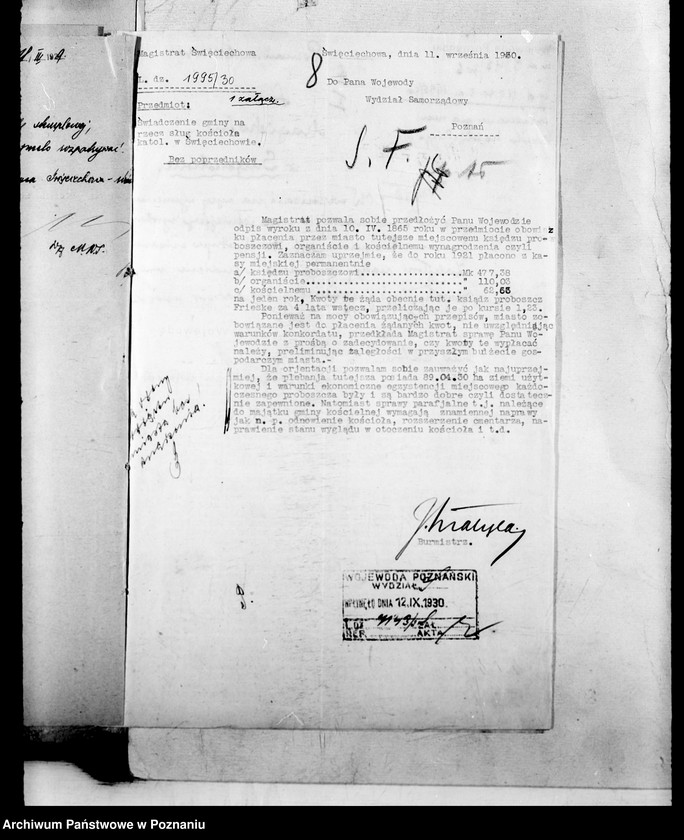 Magistrat Święciechowa
Święciechowa, dnia 11. września 1930.
L. dz. 1995/30
8
Do Pana Wojewody
1 załącz.
Wydział Samorządowy
Przedmiot:
Poznań
Świadczenie gminy na
rzecz sług kościoła
katol. w Święciechowie.
Bez poprzedników
S. F.
Magistrat pozwala sobie przedłożyć Panu Wojewodzie
odpis wyroku z dnia 10. IV. 1865 roku w przedmiocie obowiąz
ku płacenia przez miasto tutejsze miejscowemu księdzu pro-
boszczowi, organiście i kościelnemu wynagrodzenia czyli
pensji. Zaznaczam uprzejmie, że do roku 1921 płacono z ka-
sy miejskiej permanentnie
a/ księdzu proboszczowi...................Mk 477,38
b/ organiście............................ " 110,03
c/ kościelnemu .......................... " 62,63
na jeden rok, Kwoty te żąda obecnie tut. ksiądz proboszcz
Frieske za 4 lata wstecz, przeliczając je po kursie 1,23.
Ponieważ na mocy obowiązujących przepisów, miasto zo-
bowiązane jest do płacenia żądanych kwot, nie uwzględniając
warunków konkordatu, przedkłada Magistrat sprawę Panu Wo-
jewodzie z prośbą o zadecydowanie, czy kwoty te wypłacać
należy, preliminując zaległości w przyszłym budżecie gos-
podarczym miasta.-
Dla orjentacji pozwalam sobie zauważyć jak najuprzej-
miej, że plebania tutejsza posiada 89.04.50 ha ziemi użyt-
kowej i warunki ekonomiczne egzystencji miejscowego każdo-
czesnego proboszcza były i są bardzo dobre czyli dostatecz-
nie zapewnione. Natomiast sprawy parafjalne t.j. należące
do majątku gminy kościelnej wymagają znamiennej naprawy
jak n. p. odnowienie kościoła, rozszerzenie cmentarza, na-
prawienie stanu wyglądu w otoczeniu kościoła i t.d.
Burmistrz.
WOJEWODA POZNAŃSKI
WYDZIAŁ
WPŁYNĘŁO DNIA 12.IX.1930.
L.DZ. ZAŁ.
REF. AKTA
Archiwum Państwowe w Poznaniu